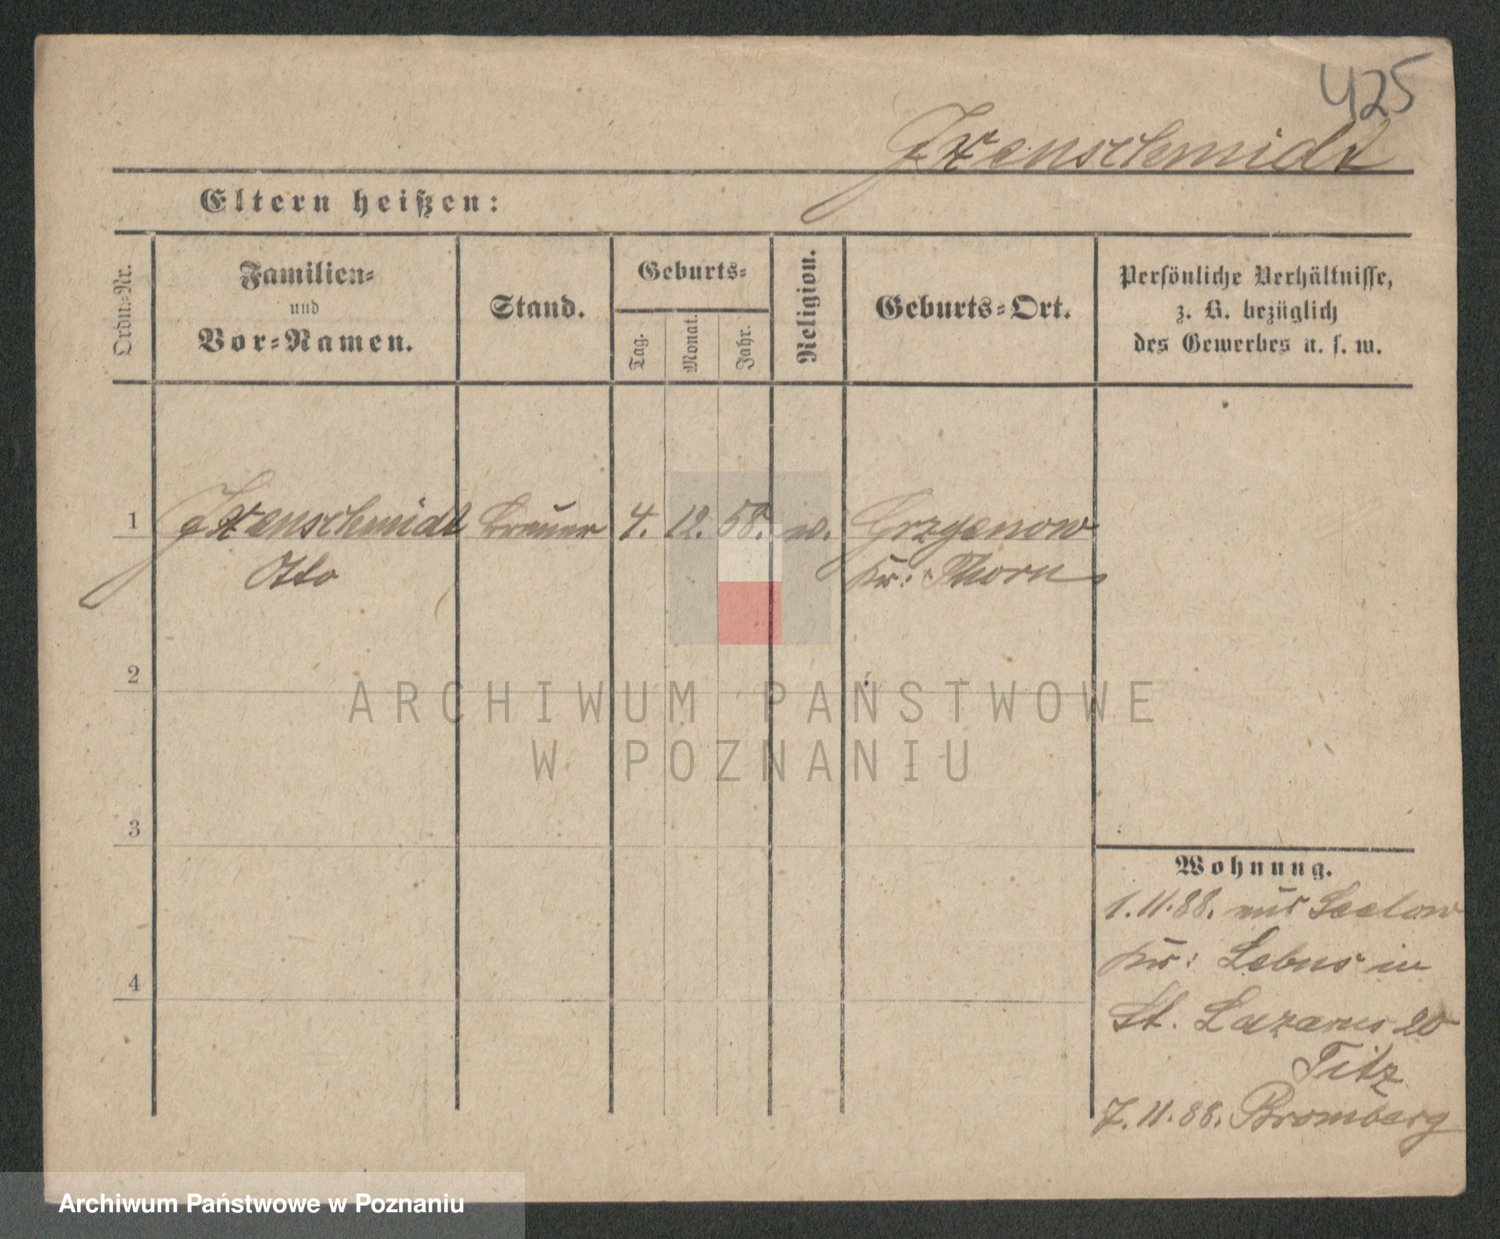 425
Ixenschmidt
Eltern heißen:
Ordn.-Nr.
Familien-
und
Vor-Namen.
Stand.
Geburts-
Tag.
Monat.
Jahr.
Religion.
Geburts-Ort.
Persönliche Verhältnisse,
z. B. bezüglich
des Gewerbes u. s. w.
1 Ixenschmidt Brauer 4. 12. 58. Grzgenow
Otto Kr: Thorn
2
3
4
ARCHIWUM PAŃSTWOWE
W POZNANIU
Wohnung.
1.11.88. aus Seelow
Kr: Lebus in
St. Lazarus 20
Titz
7.11.88. Bromberg
Archiwum Państwowe w Poznaniu